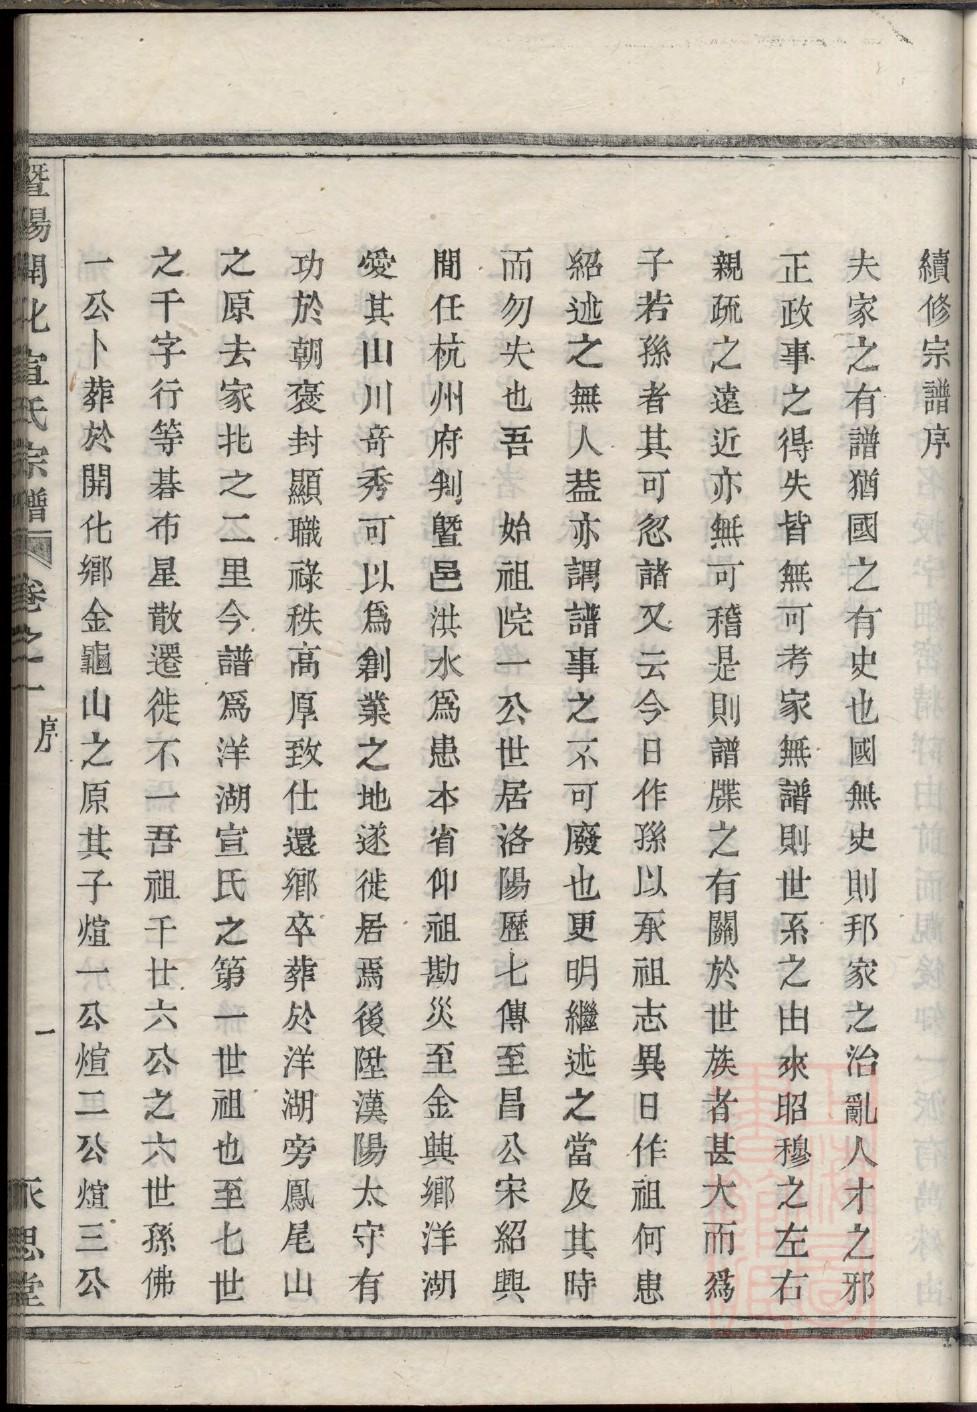 續修宗譜序
夫家之有譜猶國之有史也國無史則邦家之治亂人才之邪
正政事之得失皆無可考家無譜則世系之由來昭穆之左右
親疏之遠近亦無可稽是則譜牒之有關於世族者甚大而爲
子若孫者其可忽諸又云今日作孫以承祖志異日作祖何患
紹述之無人葢亦謂譜事之不可廢也更明繼述之當及其時
而勿失也吾 始祖院一公世居洛陽歷七傳至昌公宋紹興
間任杭州府判暨邑洪水爲患本省仰祖勘災至金興鄉洋湖
愛其山川竒秀可以爲創業之地遂徙居焉後陞漢陽太守有
功於朝褒封顯職祿秩高厚致仕還鄉卒葬於洋湖旁鳳尾山
之原去家北之二里今譜爲洋湖宣氏之第一世祖也至七世
之千字行等碁布星散遷徙不一吾祖千廿六公之六世孫佛
一公卜葬於開化鄉金龜山之原其子煊一公煊二公煊三公
暨陽開化宣氏宗譜 卷之一 序 一 永思堂